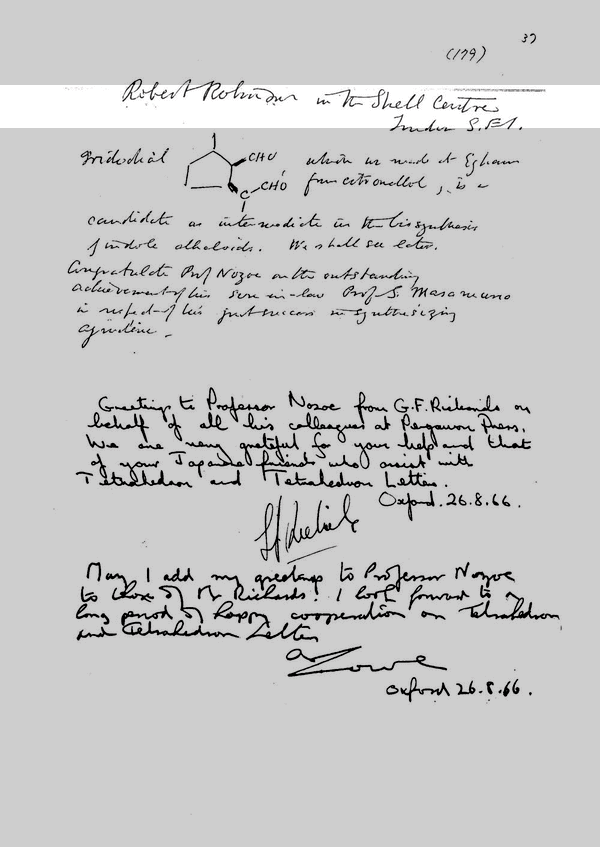 37
(179)
Robert Robinson in the Shell Centre
London S.E.1.
Iridodial CHO which is made at Egham
C CHO from citronellol, is a
candidate as intermediate in the biosynthesis
of indole alkaloids. We shall see later.
Congratulate Prof Nozoe on the outstanding
achievement of his son-in-law Prof S. Masamune
in respect of his great success in synthesizing
Greetings to Professor Nozoe from G.F. Richards on
behalf of all his colleagues at Pergamon Press.
We are very grateful for your help and that
of your Japanese friends who assist with
Tetrahedron and Tetrahedron Letters.
Oxford. 26.8.66.
May I add my greetings to Professor Nozoe
to those of Mr Richards! I look forward to a
long period of happy cooperation on Tetrahedron
and Tetrahedron Letters
Lowe
Oxford 26.8.66.